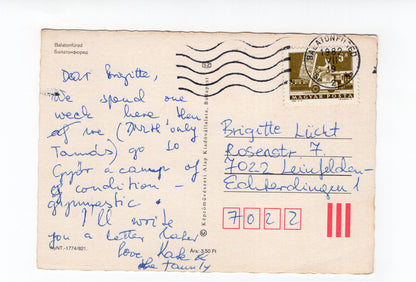 Balatonfüred
Балатонфюред
Dear Brigitte,
We spend one
week here, then
of we (Dmrh, only
Tamás) go to
Győr a camp of
of condition -
gymnastic.
I'll write
you a letter later
love
the family
MyNT.-1774/821.
Ára: 3,50 Ft
Képzőművészeti Alap Kiadóvállalata, Budapest
BALATONFÜRED
1982
5 Ft
MAGYAR POSTA
Brigitte Lücht
Rosenstr 7.
7022 Leinfelden-
Echterdingen 1
7022